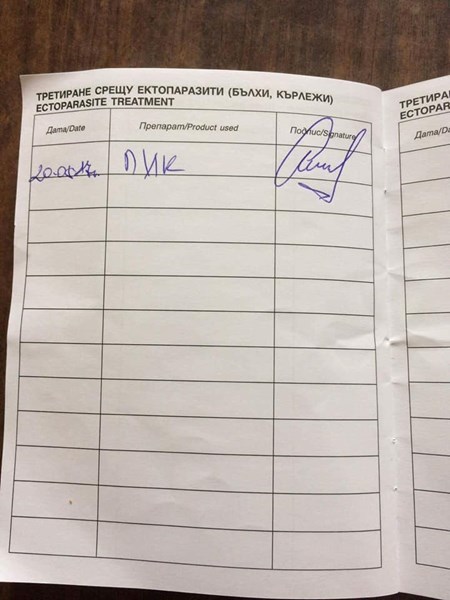 ТРЕТИРАНЕ СРЕЩУ ЕКТОПАРАЗИТИ (БЪЛХИ, КЪРЛЕЖИ)
ECTOPARASITE TREATMENT
Дата/Date Препарат/Product used Подпис/Signature
ПИК
ТРЕТИРА
ECTOPAR
Дата/Da